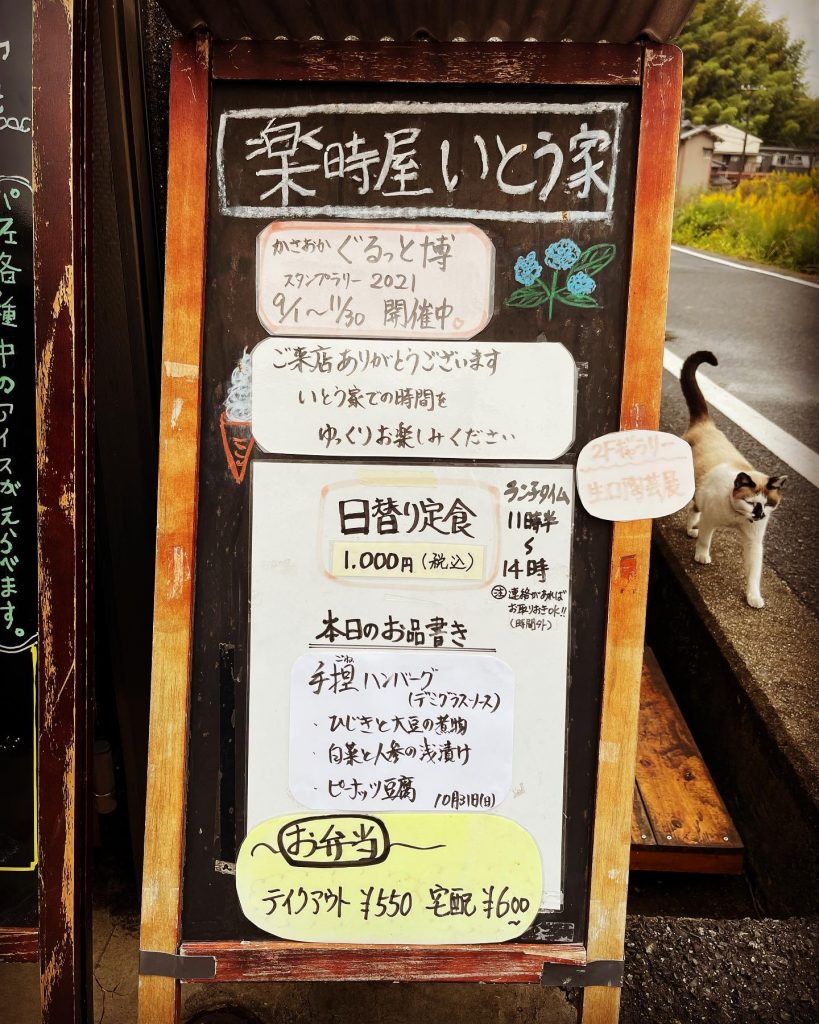 楽時屋 いとう家
かさおか ぐるっと博
スタンプラリー 2021
9/1〜11/30 開催中。
ご来店ありがとうございます
いとう家での時間を
ゆっくりお楽しみください
2Fギャラリー
日替り定食
1.000円(税込)
ランチタイム
11時半
〜
14時
㊟連絡があれば
お取りおきok!!
(時間外)
本日のお品書き
ごね
手捏ハンバーグ
(デミグラスソース)
・ひじきと大豆の煮物
・白菜と人参の浅漬け
・ピーナッツ豆腐
10月31日(日)
お弁当
テイクアウト ¥550 宅配 ¥600〜
各種中のアイスがえらべます。